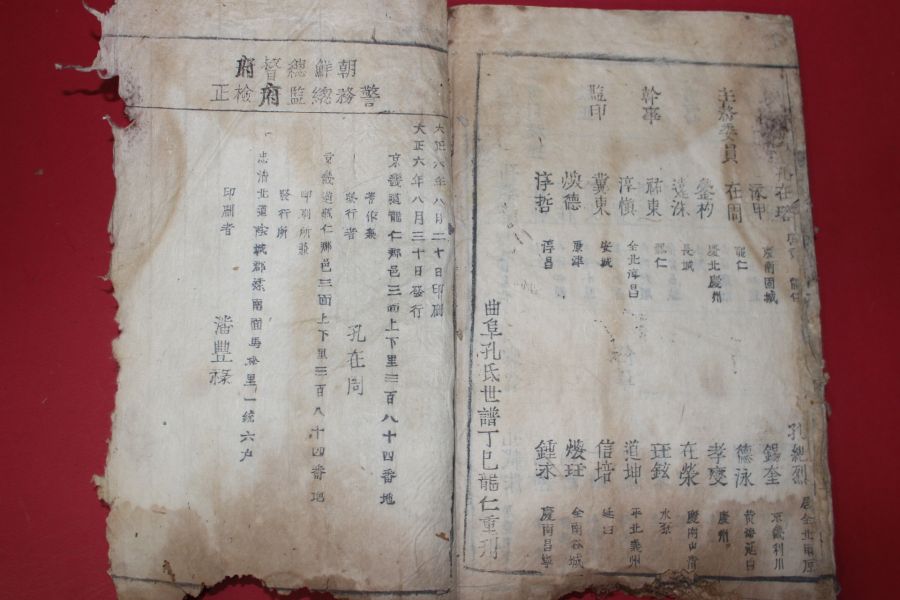 主務委員
幹事
監印
慶南固城
在周
龍仁
慶北慶州
遠洙
長城
祐東
龍仁
淳愼
全北淳昌
冀東
安城
煥德
康津
淳哲
淳昌
孔總烈
居全北南原
錫奎
京畿利川
德泳
黃海延白
孝燮
慶州
在榮
慶南山淸
珏鉉
道坤
平北義州
信培
全南谷城
鍾永
慶南昌寧
曲阜孔氏世譜丁巳龍仁重刊
朝鮮總督府
警務總監府檢正
大正六年八月二十日印刷
大正六年八月三十日發行
京畿道龍仁郡邑三面上下里三百八十四番地
著作兼
發行者
孔在周
京畿道龍仁郡邑三面上下里三百八十四番地
印刷所兼
發行所
忠淸北道陰城郡 南面馬 里一統六戶
印刷者
潘豐祿